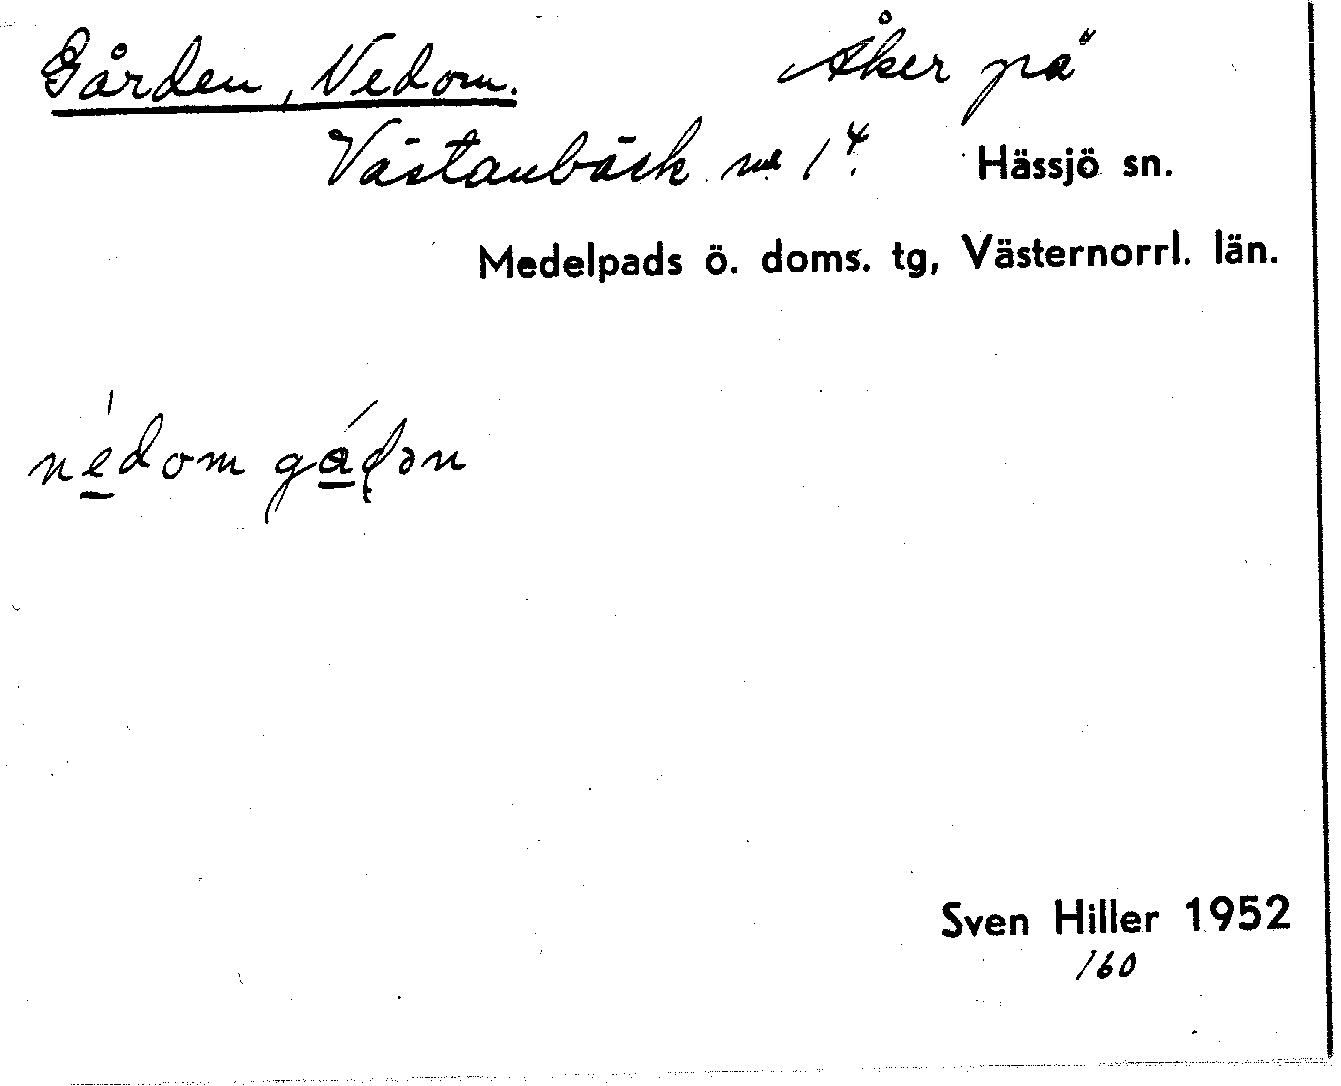 Gården, Nedom. Åker på
Västanbäck nr 1⁴. Hässjö sn.
Medelpads ö. doms. tg, Västernorrl. län.
nédom gáɖən
Sven Hiller 1952
160